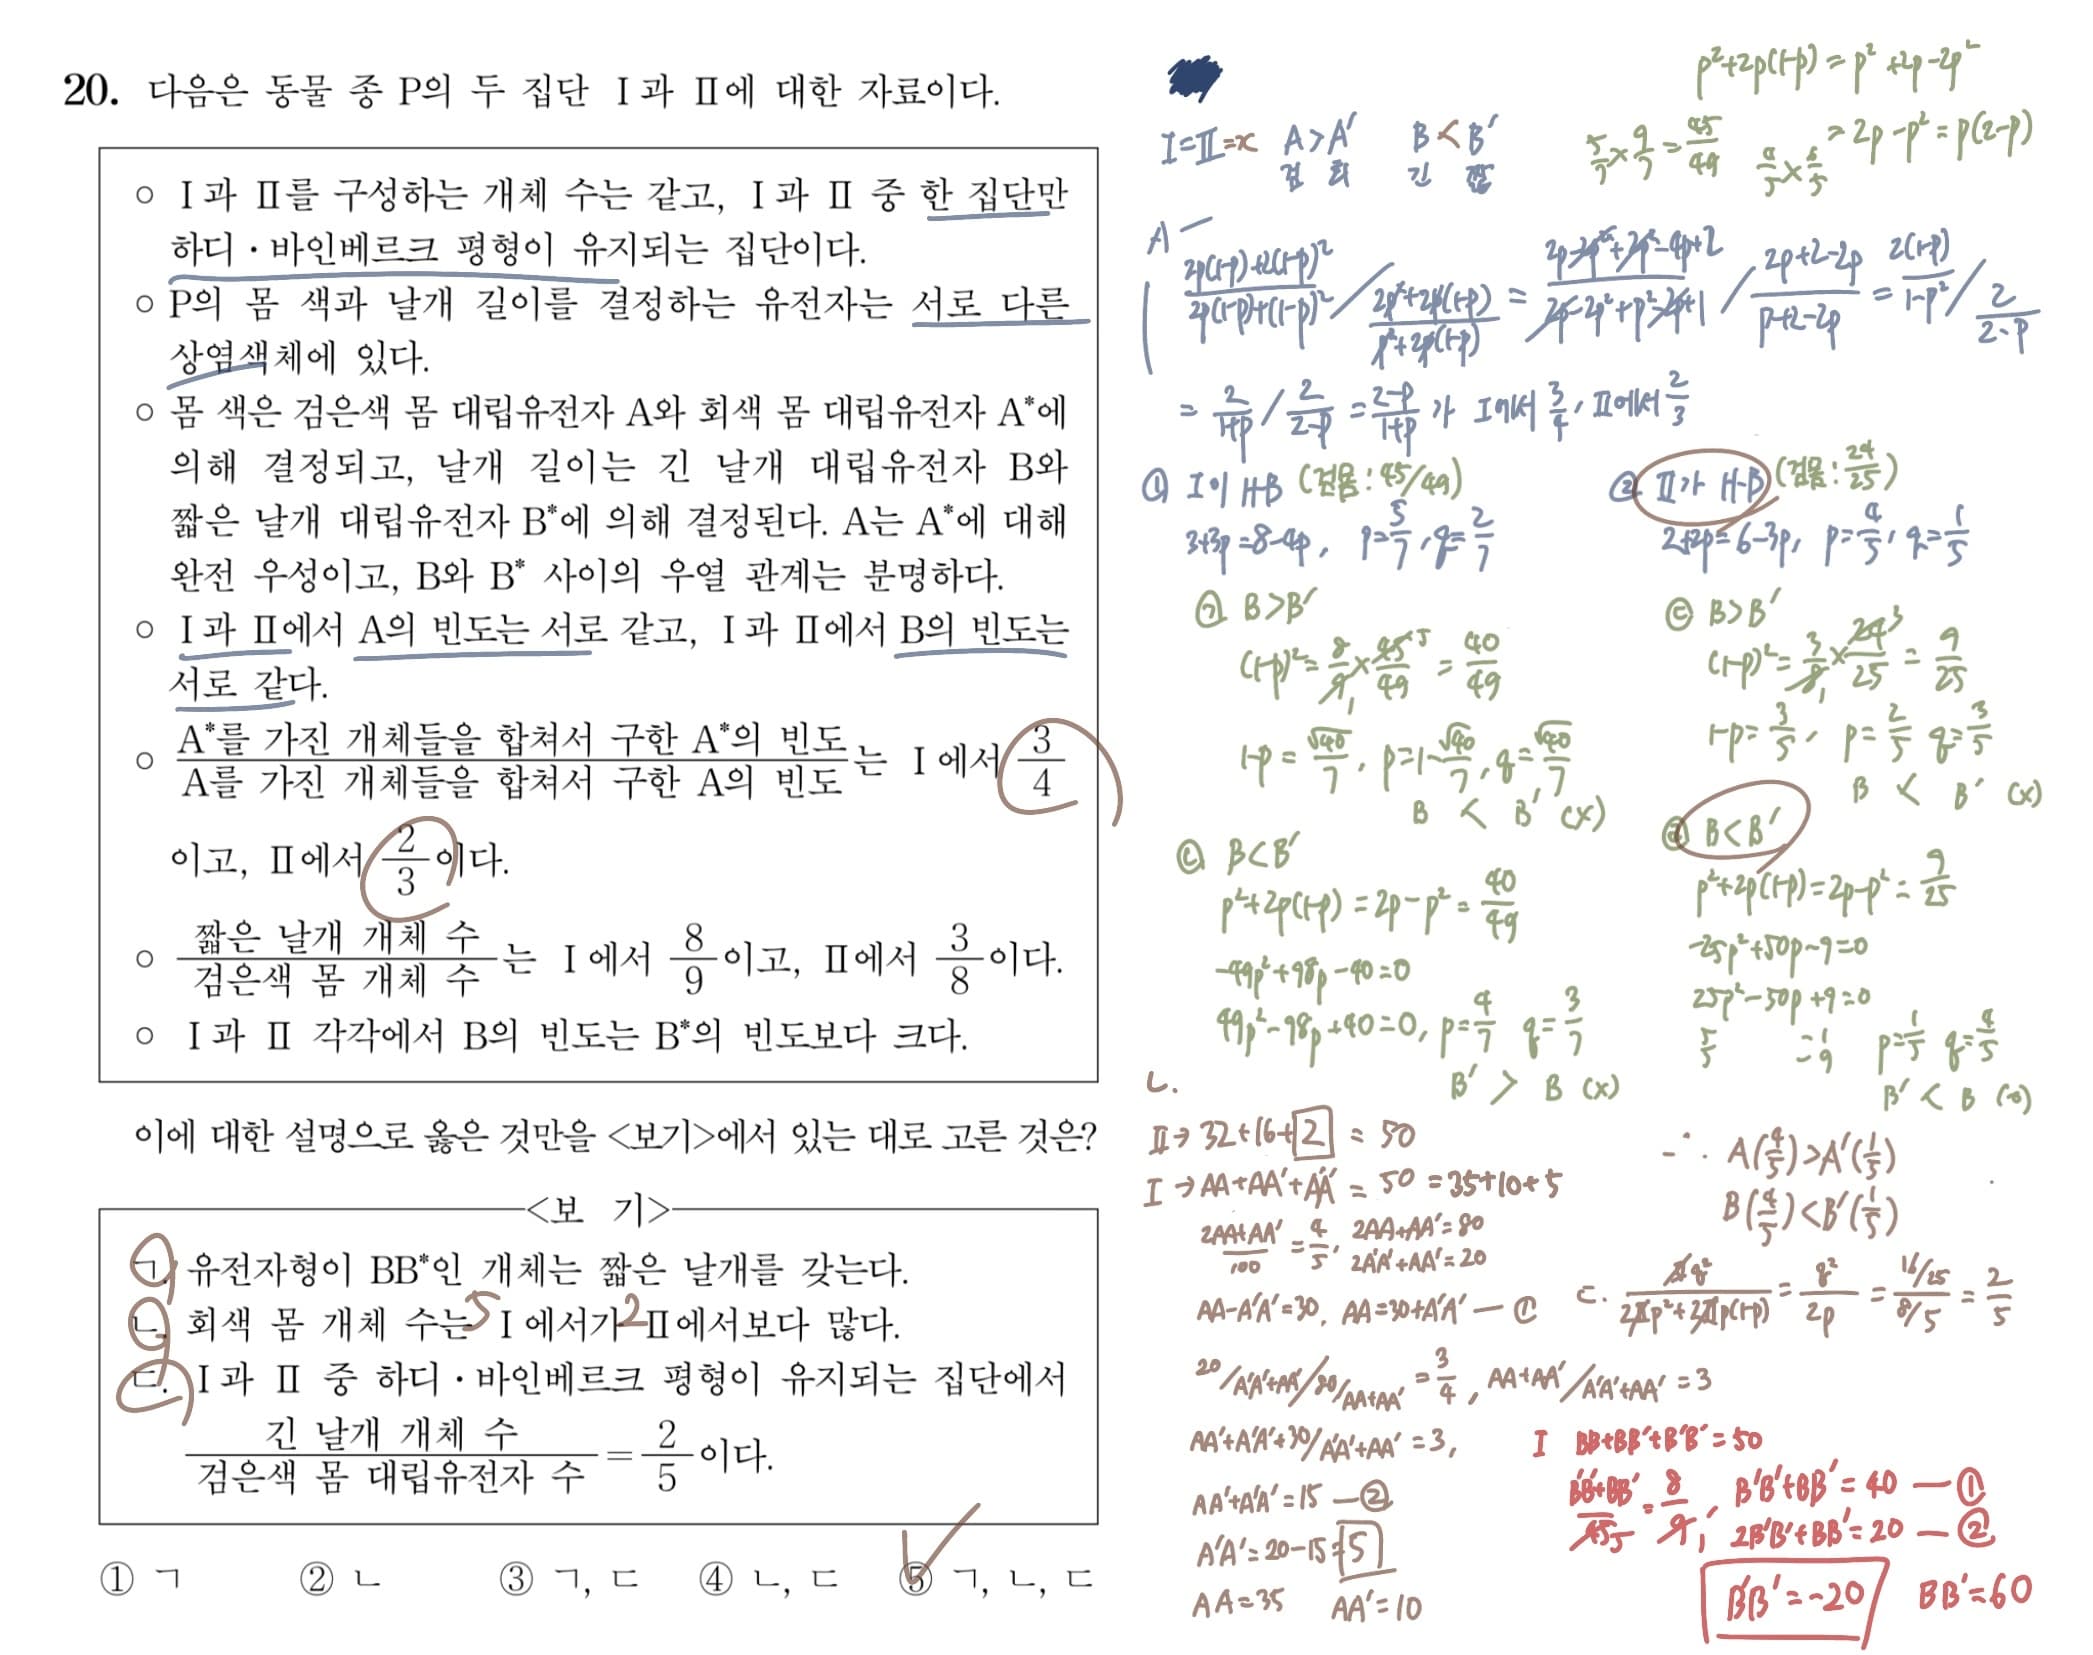 20. 다음은 동물 종 P의 두 집단 Ⅰ과 Ⅱ에 대한 자료이다.
○ Ⅰ과 Ⅱ를 구성하는 개체 수는 같고, Ⅰ과 Ⅱ 중 한 집단만
하디·바인베르크 평형이 유지되는 집단이다.
○ P의 몸 색과 날개 길이를 결정하는 유전자는 서로 다른
상염색체에 있다.
○ 몸 색은 검은색 몸 대립유전자 A와 회색 몸 대립유전자 A*에
의해 결정되고, 날개 길이는 긴 날개 대립유전자 B와
짧은 날개 대립유전자 B*에 의해 결정된다. A는 A*에 대해
완전 우성이고, B와 B* 사이의 우열 관계는 분명하다.
○ Ⅰ과 Ⅱ에서 A의 빈도는 서로 같고, Ⅰ과 Ⅱ에서 B의 빈도는
서로 같다.
○ A*를 가진 개체들을 합쳐서 구한 A*의 빈도 / A를 가진 개체들을 합쳐서 구한 A의 빈도 는 Ⅰ에서 3/4
이고, Ⅱ에서 2/3이다.
○ 짧은 날개 개체 수 / 검은색 몸 개체 수 는 Ⅰ에서 8/9이고, Ⅱ에서 3/8이다.
○ Ⅰ과 Ⅱ 각각에서 B의 빈도는 B*의 빈도보다 크다.
이에 대한 설명으로 옳은 것만을 <보기>에서 있는 대로 고른 것은?
<보 기>
ㄱ. 유전자형이 BB*인 개체는 짧은 날개를 갖는다.
ㄴ. 회색 몸 개체 수는 Ⅰ에서가 Ⅱ에서보다 많다.
5 2
ㄷ. Ⅰ과 Ⅱ 중 하디·바인베르크 평형이 유지되는 집단에서
긴 날개 개체 수 / 검은색 몸 대립유전자 수 = 2/5이다.
① ㄱ ② ㄴ ③ ㄱ, ㄷ ④ ㄴ, ㄷ ⑤ ㄱ, ㄴ, ㄷ
p²+2p(1-p) = p²+2p-2p²
= 2p-p² = p(2-p)
Ⅰ=Ⅱ=x A>A' B<B'
검 회 긴 짧
5/7 × 9/7 = 45/49 4/5 × 6/5
A
2p(1-p)+2(1-p)² / 2p(1-p)+(1-p)² / 2p²+2p(1-p) / p²+2p(1-p) = 2p-2p²+2p²-4p+2 / 2p-2p²+p²-2p+1 / 2p+2-2p / p+2-2p = 2(1-p) / 1-p² / 2 / 2-p
= 2/1+p / 2/2-p = 2-p/1+p 가 Ⅰ에서 3/4, Ⅱ에서 2/3
① Ⅰ이 H-B (검몸: 45/49)
3+3p=8-4p, p=5/7, q=2/7
㉠ B>B'
(1-p)² = 8/9 × 45/49 = 40/49
1-p = √40/7, p=1-√40/7, q=√40/7
B < B' (x)
㉡ B<B'
p²+2p(1-p) = 2p-p² = 40/49
-49p²+98p-40=0
49p²-98p+40=0, p=4/7 q=3/7
B' > B (x)
② Ⅱ가 H-B (검몸: 24/25)
2+2p=6-3p, p=4/5, q=1/5
㉢ B>B'
(1-p)² = 3/8 × 24/25 = 9/25
1-p=3/5, p=2/5 q=3/5
B < B' (x)
㉣ B<B'
p²+2p(1-p)=2p-p²=9/25
-25p²+50p-9=0
25p²-50p+9=0
5 5 -1 -9 p=1/5 q=4/5
B' < B (o)
∴ A(4/5)>A'(1/5)
B(4/5)<B'(1/5)
ㄴ.
Ⅱ→ 32+16+2 = 50
Ⅰ→ AA+AA'+A'A' = 50 = 35+10+5
2AA+AA'/100 = 4/5, 2AA+AA'=80
2A'A'+AA'=20
AA-A'A'=30, AA=30+A'A' — ①
20/A'A'+AA' / 80/AA+AA' = 3/4, AA+AA'/A'A'+AA' = 3
AA'+A'A'+30/A'A'+AA' = 3,
AA'+A'A'=15 — ②
A'A'=20-15=5
AA=35 AA'=10
ㄷ. q² / 2p²+2p(1-p) = q²/2p = 16/25 / 8/5 = 2/5
Ⅰ BB+BB'+B'B'=50
B'B'+BB'/45 = 8/9, B'B'+BB'=40 — ①
2B'B'+BB'=20 — ②
B'B'=-20 BB'=60